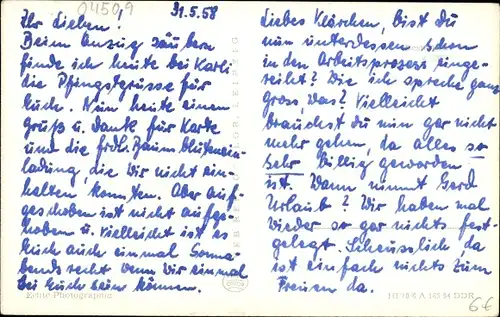 04509
31.5.58
Ihr Lieben!
Beim Anzug säubern
finde ich heute bei Karli
die Pfingstgrüsse für
Euch. Nun heute einen
Gruß u. Dank für Karte
und die frdl. Baumblütenein-
ladung die wir nicht ein-
halten konnten. Aber auf-
geschoben ist nicht aufge-
hoben u. vielleicht ist es
Euch auch einmal Sonna-
bends recht wenn wir einmal
bei Euch sein können.
Echte Photographie
Liebes Klärchen, bist du
nun unterdessen schon
in den Arbeitsprozess einge-
reiht? Die ich spreche ganz
gross, was? Vielleicht
brauchst du nun gar nicht
mehr gehen, da alles so
sehr billig geworden
ist. Wann nimmt Gerd
Urlaub? Wir haben mal
wieder so gar nichts fest-
gelegt. Scheusslich, da
ist einfach nichts zum
Freuen da.
DDR
6€